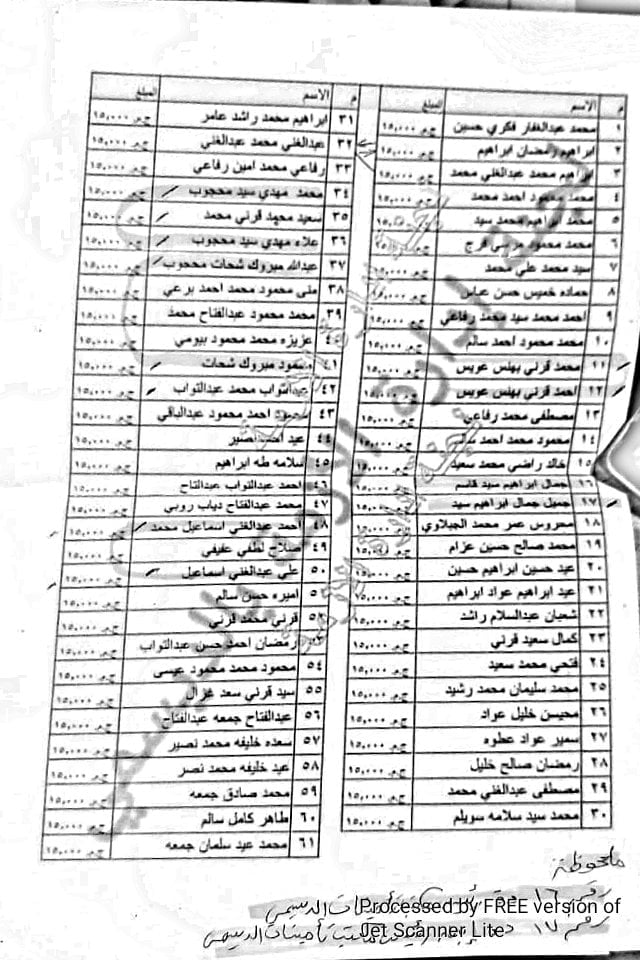 م الاسم المبلغ
١ محمد عبدالغفار فكري حسين ج.م. ١٥,٠٠٠
٢ ابراهيم رمضان ابراهيم ج.م. ١٥,٠٠٠
٣ ابراهيم محمد عبدالغني محمد ج.م. ١٥,٠٠٠
٤ محمد محمود احمد محمد ج.م. ١٥,٠٠٠
٥ محمد ابراهيم محمد سيد ج.م. ١٥,٠٠٠
٦ محمد محمود مرسي فرج ج.م. ١٥,٠٠٠
٧ سيد محمد علي محمد ج.م. ١٥,٠٠٠
٨ حماده خميس حسن عباس ج.م. ١٥,٠٠٠
٩ احمد محمد سيد محمد رفاعي ج.م. ١٥,٠٠٠
١٠ محمد محمود احمد سالم ج.م. ١٥,٠٠٠
١١ محمد قرني بهنس عويس ج.م. ١٥,٠٠٠
١٢ احمد قرني بهنس عويس ج.م. ١٥,٠٠٠
١٣ مصطفى محمد رفاعي ج.م. ١٥,٠٠٠
١٤ محمود محمد احمد سالم ج.م. ١٥,٠٠٠
١٥ خالد راضي محمد سعيد ج.م. ١٥,٠٠٠
١٦ جمال ابراهيم سيد قاسم ج.م. ١٥,٠٠٠
١٧ جميل جمال ابراهيم سيد ج.م. ١٥,٠٠٠
١٨ محروس عمر محمد الجيلاوي ج.م. ١٥,٠٠٠
١٩ محمد صالح حسين عزام ج.م. ١٥,٠٠٠
٢٠ عيد حسين ابراهيم حسين ج.م. ١٥,٠٠٠
٢١ عيد ابراهيم عواد ابراهيم ج.م. ١٥,٠٠٠
٢٢ شعبان عبدالسلام راشد ج.م. ١٥,٠٠٠
٢٣ كمال سعيد قرني ج.م. ١٥,٠٠٠
٢٤ فتحي محمد سعيد ج.م. ١٥,٠٠٠
٢٥ محمد سليمان محمد رشيد ج.م. ١٥,٠٠٠
٢٦ محيسن خليل عواد ج.م. ١٥,٠٠٠
٢٧ سمير عواد عطوه ج.م. ١٥,٠٠٠
٢٨ رمضان صالح خليل ج.م. ١٥,٠٠٠
٢٩ مصطفى عبدالغني محمد ج.م. ١٥,٠٠٠
٣٠ محمد سيد سلامه سويلم ج.م. ١٥,٠٠٠
م الاسم المبلغ
٣١ ابراهيم محمد راشد عامر ج.م. ١٥,٠٠٠
٣٢ عبدالغني محمد عبدالغني ج.م. ١٥,٠٠٠
٣٣ رفاعي محمد امين رفاعي ج.م. ١٥,٠٠٠
٣٤ محمد مهدي سيد محجوب ج.م. ١٥,٠٠٠
٣٥ سعيد محمد قرني محمد ج.م. ١٥,٠٠٠
٣٦ علاء مهدي سيد محجوب ج.م. ١٥,٠٠٠
٣٧ عبدالله مبروك شحات محجوب ج.م. ١٥,٠٠٠
٣٨ محمود محمد احمد برعي ج.م. ١٥,٠٠٠
٣٩ محمد محمود عبدالفتاح محمد ج.م. ١٥,٠٠٠
٤٠ عزيزه محمد محمود بيومي ج.م. ١٥,٠٠٠
٤١ محمود مبروك شحات ج.م. ١٥,٠٠٠
٤٢ عبدالتواب محمد عبدالتواب ج.م. ١٥,٠٠٠
٤٣ محمود احمد محمود عبدالباقي ج.م. ١٥,٠٠٠
٤٤ عيد احمد نصير ج.م. ١٥,٠٠٠
٤٥ سلامه طه ابراهيم ج.م. ١٥,٠٠٠
٤٦ احمد عبدالتواب عبدالفتاح ج.م. ١٥,٠٠٠
٤٧ محمد عبدالفتاح دياب روبي ج.م. ١٥,٠٠٠
٤٨ احمد عبدالغني اسماعيل محمد ج.م. ١٥,٠٠٠
٤٩ صلاح لطفي عفيفي ج.م. ١٥,٠٠٠
٥٠ علي عبدالغني اسماعيل ج.م. ١٥,٠٠٠
٥١ اميره حسن سالم ج.م. ١٥,٠٠٠
٥٢ قرني محمد قرني ج.م. ١٥,٠٠٠
٥٣ رمضان احمد حسن عبدالتواب ج.م. ١٥,٠٠٠
٥٤ محمود محمد محمود عيسى ج.م. ١٥,٠٠٠
٥٥ سيد قرني سعد غزال ج.م. ١٥,٠٠٠
٥٦ عبدالفتاح جمعه عبدالفتاح ج.م. ١٥,٠٠٠
٥٧ سعده خليفه محمد نصير ج.م. ١٥,٠٠٠
٥٨ عيد خليفه محمد نصر ج.م. ١٥,٠٠٠
٥٩ محمد صادق جمعه ج.م. ١٥,٠٠٠
٦٠ طاهر كامل سالم ج.م. ١٥,٠٠٠
٦١ محمد عيد سلمان جمعه ج.م. ١٥,٠٠٠
ملحوظة
رقم ١٦
رقم ١٧
Processed by FREE version of
Jet Scanner Lite